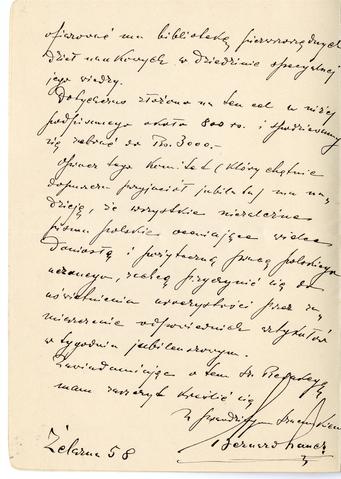 ofiarować mu bibliotekę pierwszorzędnych
dzieł naukowych w dziedzinie specyalnej
jego wiedzy.
Dotychczas złożono na ten cel w niżej
podpisanego około 800 rs. i spodziewamy
się zebrać do Rs. 3000.-
Oprócz tego Komitet (który chętnie
dopuszcza przyjaciół jubilata) ma na-
dzieję, że wszystkie niezależne
pisma polskie oceniające wielce
doniosłą i pożyteczną pracę polskiego
uczonego, zechcą przyczynić się do
uświetnienia uroczystości przez za-
mieszczenie odpowiednich artykułów
w tygodniu jubileuszowym.
Zawiadamiając o tem Sz. Redakcyę
mam zaszczyt kreślić się
z
Bernard
Żelazna 58